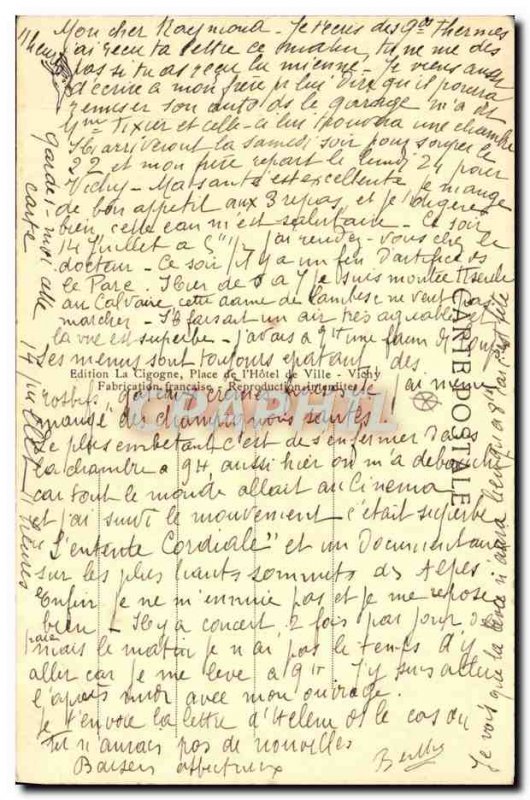 Mon cher Raymond - Je t'écris des gds Thermes
j'ai reçu ta lettre ce matin tu ne me dis
pas si tu as reçu la mienne. Je viens aussi
d'écrire à mon frère lui dire qu'il pourra
remiser son auto ds le garage m'a dit
Mme Tixier et celle-ci lui trouvera une chambre
Ils arriveront la samedi soir pour souper le
22 et mon frère repart le lundi 24 pour
Vichy - Ma santé est excellente je mange
de bon appétit aux 3 repas et je digère
bien, cette eau m'est salutaire - Ce soir
14 Juillet à 5h j'ai rendez-vous chez le
docteur - Ce soir il y a un feu d'artifice ds
le Parc. Hier de 5 à 7 je suis montée seule
au Calvaire cette dame de Lambesc ne veut pas
marcher - Il faisait un air très agréable et
la vue est superbe - j'avais à 9h une faim de loup
Les menus sont toujours épatants des
Edition La Cigogne, Place de l'Hôtel de Ville - Vichy
Fabrication française - Reproduction interdite
rosbifs
mangé des champignons sautés
Le plus embêtant c'est de s'enfermer dans
la chambre à 9h aussi hier on m'a débauché
car tout le monde allait au Cinéma
et j'ai suivi le mouvement c'était superbe
"L'entente Cordiale" et un Documentaire
sur les plus hauts sommets des Alpes.
Enfin je ne m'ennuie pas et je me repose
bien - Il y a concert 2 fois par jour ds
mais le matin je n'ai pas le temps d'y
aller car je me lève à 9h. J'y suis allée
l'après midi avec mon ouvrage.
Je t'envoie la lettre d'Hélène ds le cas où
tu n'aurais pas de nouvelles
Baisers affectueux
Berthe
11 heures
Garde-moi cette
carte
14
CARTE POSTALE
Je vois que la
CPAPHIL